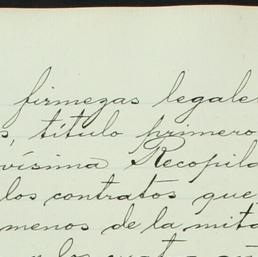 firmezas legale
s, título primero
vísima Recopila
los contratos que
menos de la mita